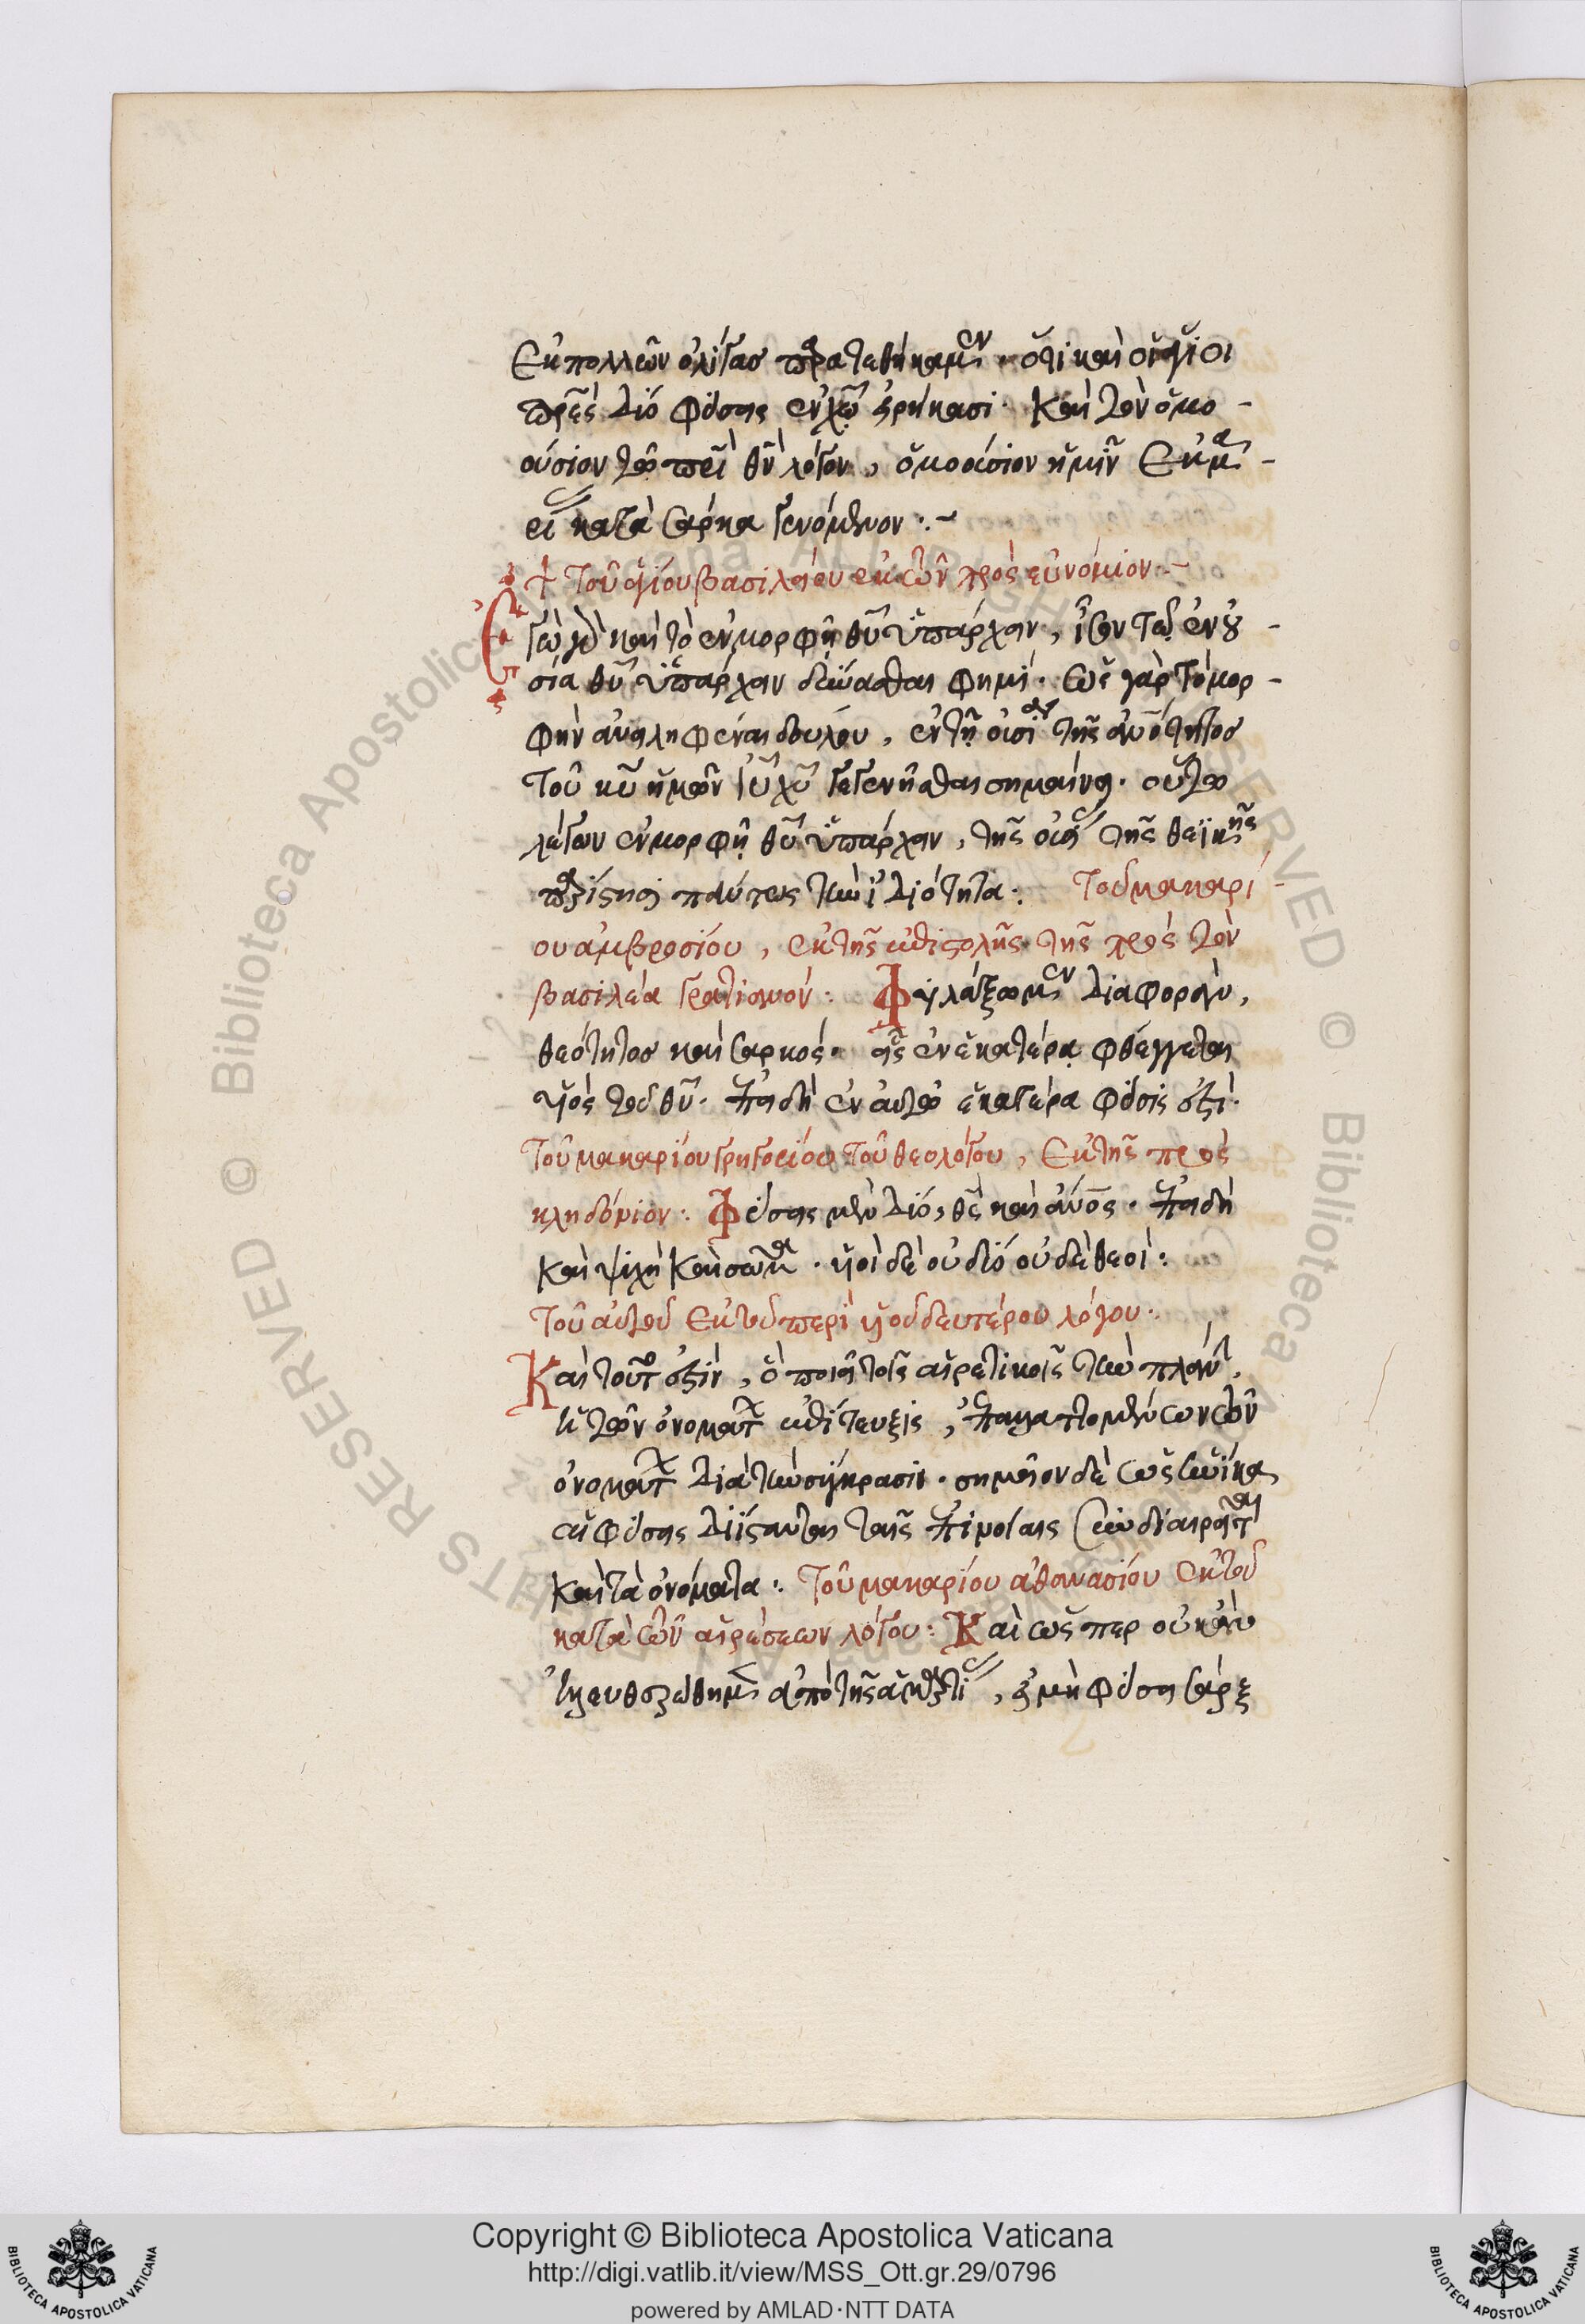 Ἐκ πολλῶν ὀλίγας παρατεθήκαμεν ὅτι καὶ οἱ ἅγιοι
πρες δύο φύσεις ἐν χω εἰρήκασι· Καὶ τὸν ὁμο-
ούσιον τῶ πρι θν λόγον, ὁμοούσιον ἡμῖν ἐκ μ-
ρί κατὰ σάρκα γενόμενον:~
+ Τοῦ ἁγίου βασιλείου ἐκ τῶν πρὸς εὐνόμιον:~
Ἐγὼ δὲ καὶ τὸ ἐν μορφῇ θυ ὑπάρχειν, ἴσον τῷ ἐν οὐ-
σία θυ ὑπάρχειν δύνασθαι φημί· ὡς γὰρ τὸ μορ-
φὴν ἀνειληφέναι δούλου, ἐν τῇ οὐσία τῆς ἀνότητος
τοῦ κυ ἡμῶν ιυ χυ γεγενῆσθαι σημαίνει· οὕτω
λέγων ἐν μορφῇ θυ ὑπάρχειν, τῆς οὐσίας τῆς θεϊκῆς
παρίστησι πάντως τὴν ἰδιότητα: Τοῦ μακαρί-
ου ἀμβροσίου, ἐκ τῆς ἐπιστολῆς τῆς πρὸς τὸν
βασιλέα γρατιανόν: Φυλάξωμεν διαφορὰν,
θεότητος καὶ σαρκός· εἷς ἐν ἑκατέρᾳ φθέγγεται
υἱὸς τοῦ θυ· ἐπειδὴ ἐν αὐτῶ ἑκατέρα φύσις ἐστί·
Τοῦ μακαρίου γρηγορίου τοῦ θεολόγου, Ἐκ τῆς πρὸς
κληδόνιον: Φύσεις μὲν δύο, θς καὶ ἀνος· ἐπειδὴ
καὶ ψυχὴ καὶ σῶμα· υἱοὶ δὲ οὐ δύο οὐδὲ θεοί:
Τοῦ αὐτοῦ Ἐκ τοῦ περὶ υἱοῦ δευτέρου λόγου:
Καὶ τοῦτο ἐστὶν, ὃ ποιεῖ τοῖς αἱρετικοῖς τὴν πλάνην,
ἡ τῶν ὀνομάτων ἐπίζευξις, ἐπαλλαττομένων τῶν
ὀνομάτων διὰ τὴν σύγκρασιν· σημεῖον δὲ ὡς ἡνίκα
αἱ φύσεις διΐστανται ταῖς ἐπινοίαις συνδιαιρεῖται
καὶ τὰ ὀνόματα: Τοῦ μακαρίου ἀθανασίου ἐκ τοῦ
κατὰ τῶν αἱρέσεων λόγου: Καὶ ὥσπερ οὐκ ἂν
ἠλευθερώθημεν ἀπὸ τῆς ἁμαρτίας, εἰ μὴ φύσει σάρξ
Copyright © Biblioteca Apostolica Vaticana
http://digi.vatlib.it/view/MSS_Ott.gr.29/0796
powered by AMLAD·NTT DATA
BIBLIOTECA APOSTOLICA VATICANA
BIBLIOTECA APOSTOLICA VATICANA